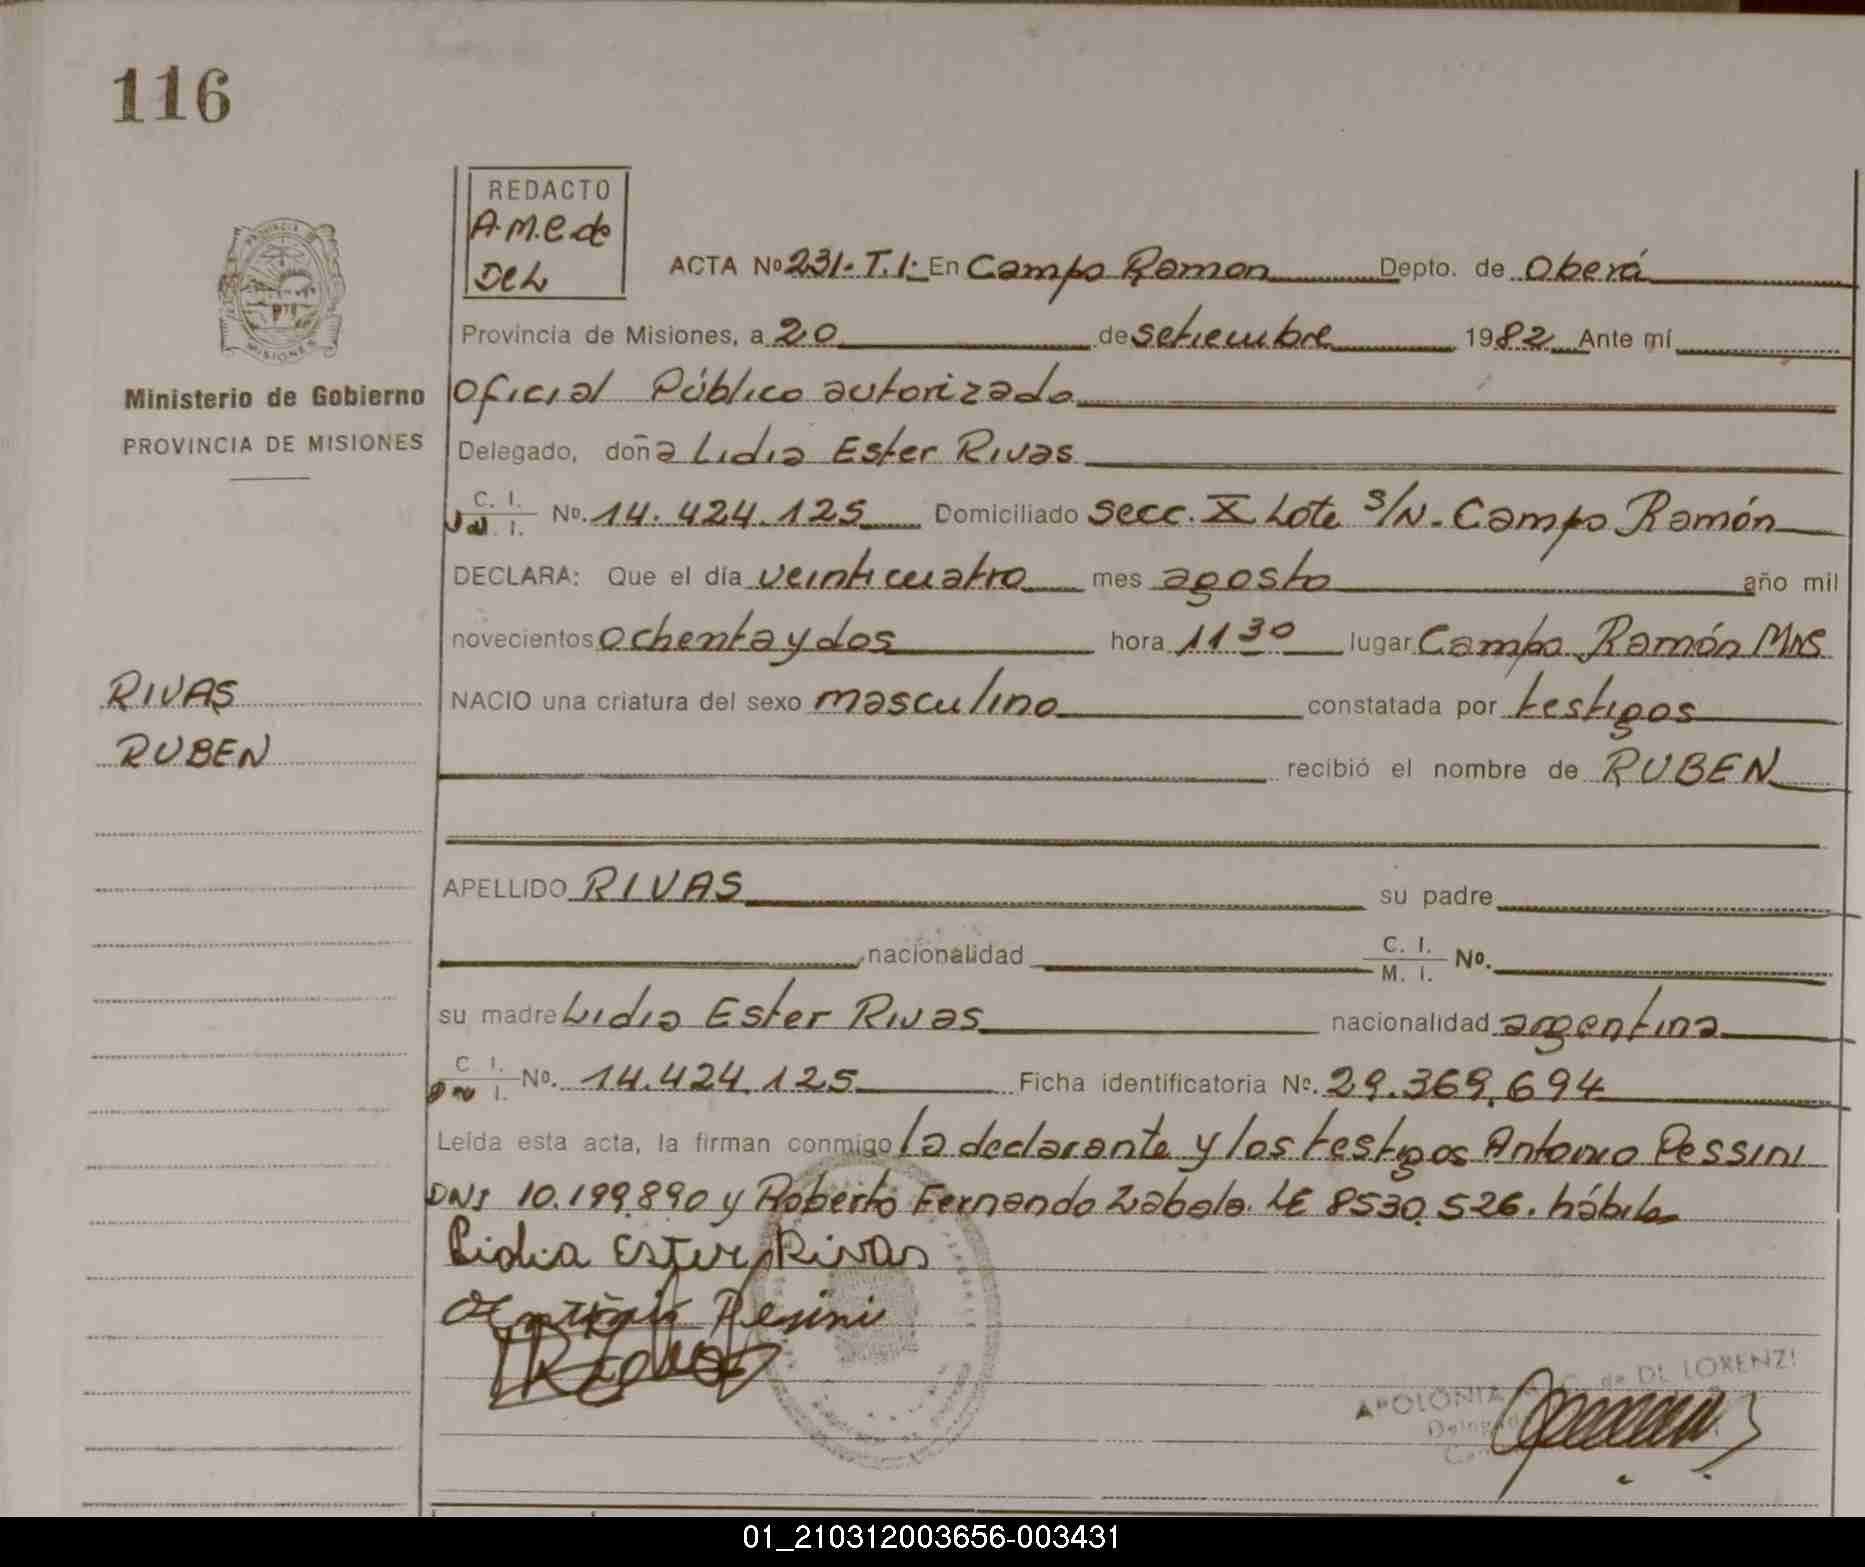 116
REDACTO
A.M.C de
DeL
PROVINCIA DE
MISIONES
ACTA Nº 231-T.1: En Campo Ramon Depto. de Oberá
Provincia de Misiones, a 20 de setiembre 1982 Ante mí
Ministerio de Gobierno
PROVINCIA DE MISIONES
Oficial Público autorizado
Delegado, doña Lidia Ester Rivas
C. I. I. Nº. 14.424.125 Domiciliado Secc. X Lote S/N. Campo Ramón
DECLARA: Que el día veinticuatro mes agosto año mil
novecientos ochenta y dos hora 11 30 lugar Campo Ramón Mns
RIVAS
RUBEN
NACIO una criatura del sexo masculino constatada por testigos
recibió el nombre de RUBEN
APELLIDO RIVAS su padre
nacionalidad C. I. M. I. Nº.
su madre Lidia Ester Rivas nacionalidad argentina
C I. I. Nº. 14.424.125 Ficha identificatoria Nº. 29.369.694
Leída esta acta, la firman conmigo la declarante y los testigos Antonio Pessini
DNI 10.199.890 y Roberto Fernando Zabala. LE 8530.526. hábiles
Lidia Ester Rivas
Antonio Pesini
APOLONIA C. de DE LORENZI
01_210312003656-003431